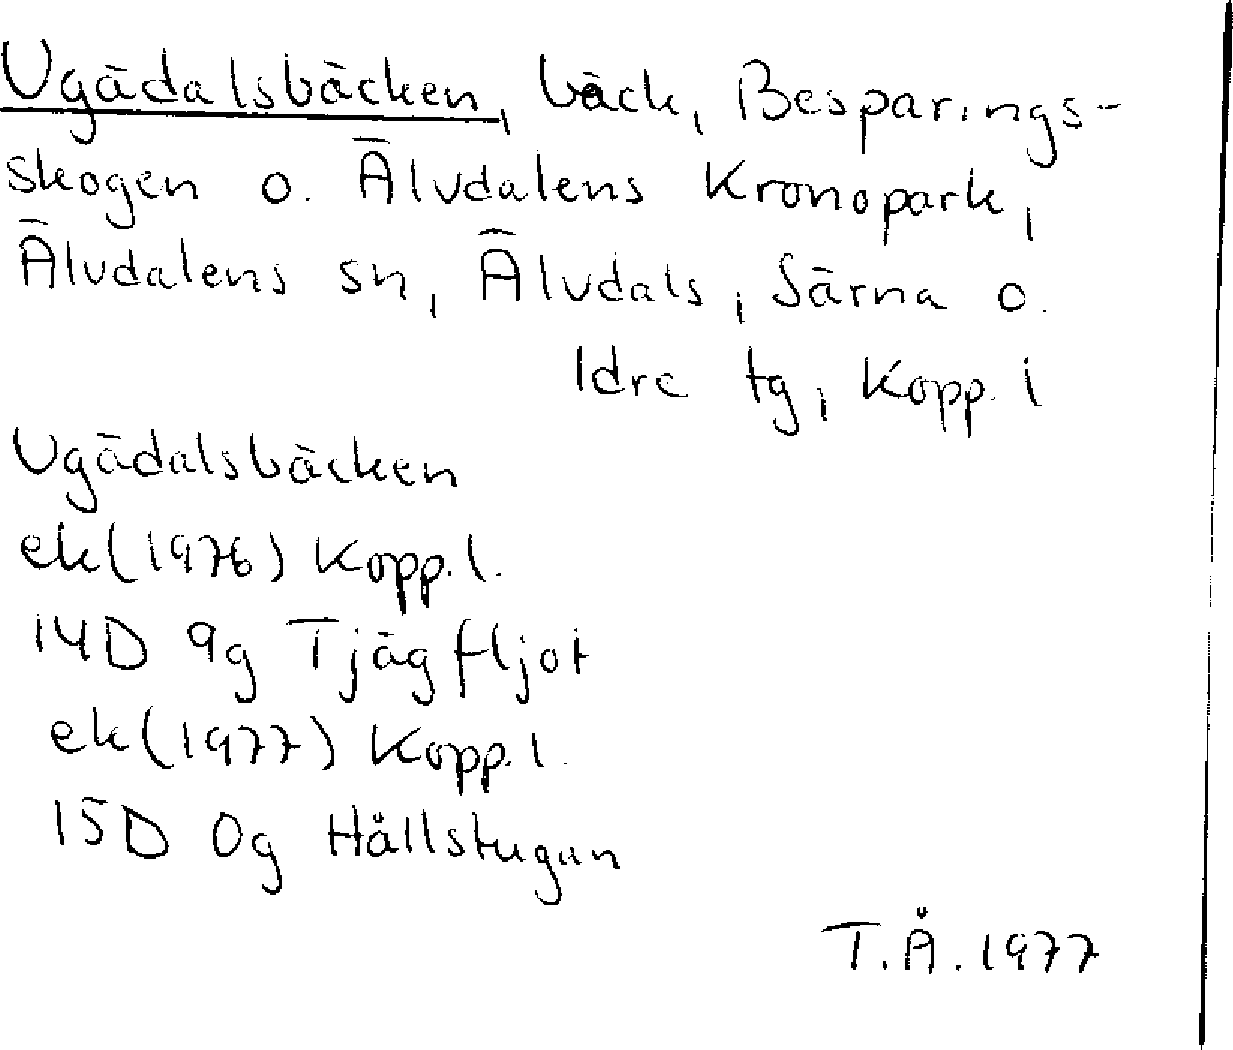 Ugädalsbäcken, bäck, Besparings-
skogen o. Älvdalens Kronopark,
Älvdalens sn, Älvdals, Särna o.
Idre tg, Kopp. l
Ugädalsbäcken
ek(1976) Kopp. l.
14D 9g Tjägfljot
ek(1977) Kopp. l.
15D 0g Hållstugan
T.Å. 1977